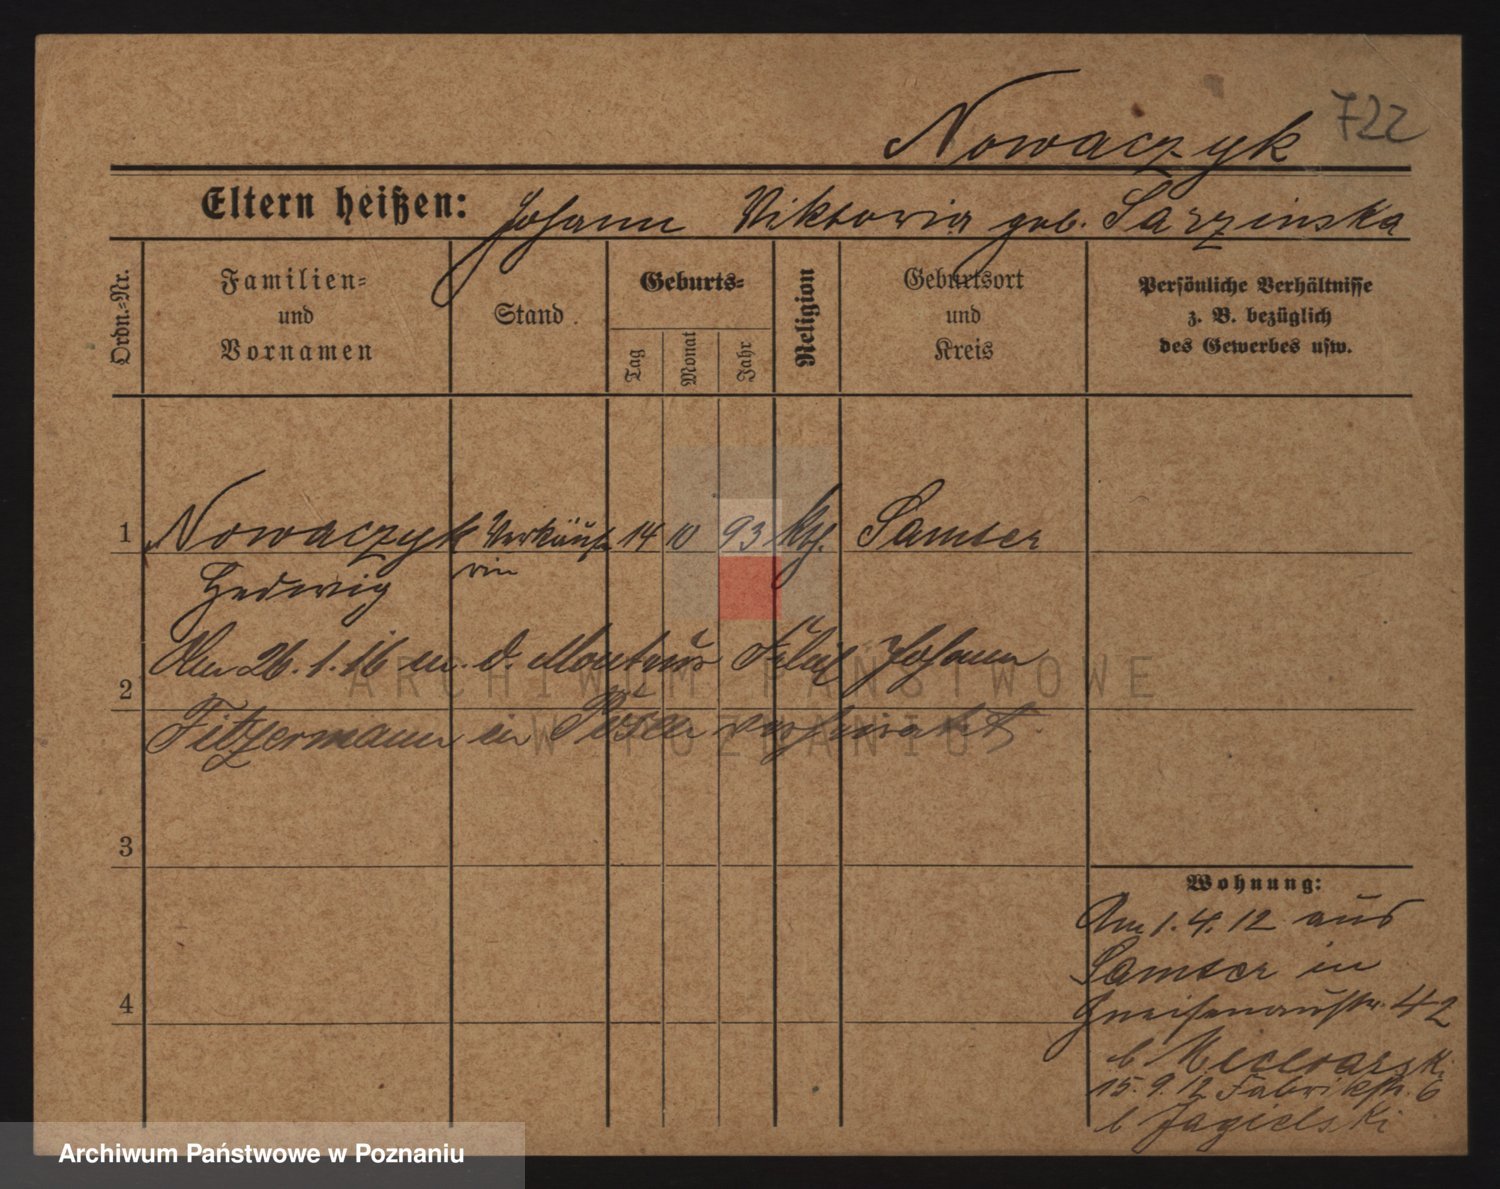 Nowaczyk 722
Eltern heißen: Johann Viktoria geb. Sarzinska
Ordn.-Nr.
Familien-
und
Vornamen
Stand
Geburts-
Tag
Monat
Jahr
Religion
Geburtsort
und
Kreis
Persönliche Verhältnisse
z. B. bezüglich
des Gewerbes usw.
1 Nowaczyk Verkäufe 14 10 93 kth. Samter
Hedwig rin
Am 26.1.16 m. d. Johann
2
Fitzermann in Posen verheiratet.
ARCHIWUM PAŃSTWOWE
W POZNANIU
3
Wohnung:
Am 1.4.12 aus
Samter in
Gneisenaustr. 42
4
b
15.9.12 Fabrikstr. 6
b Jagielski
Archiwum Państwowe w Poznaniu